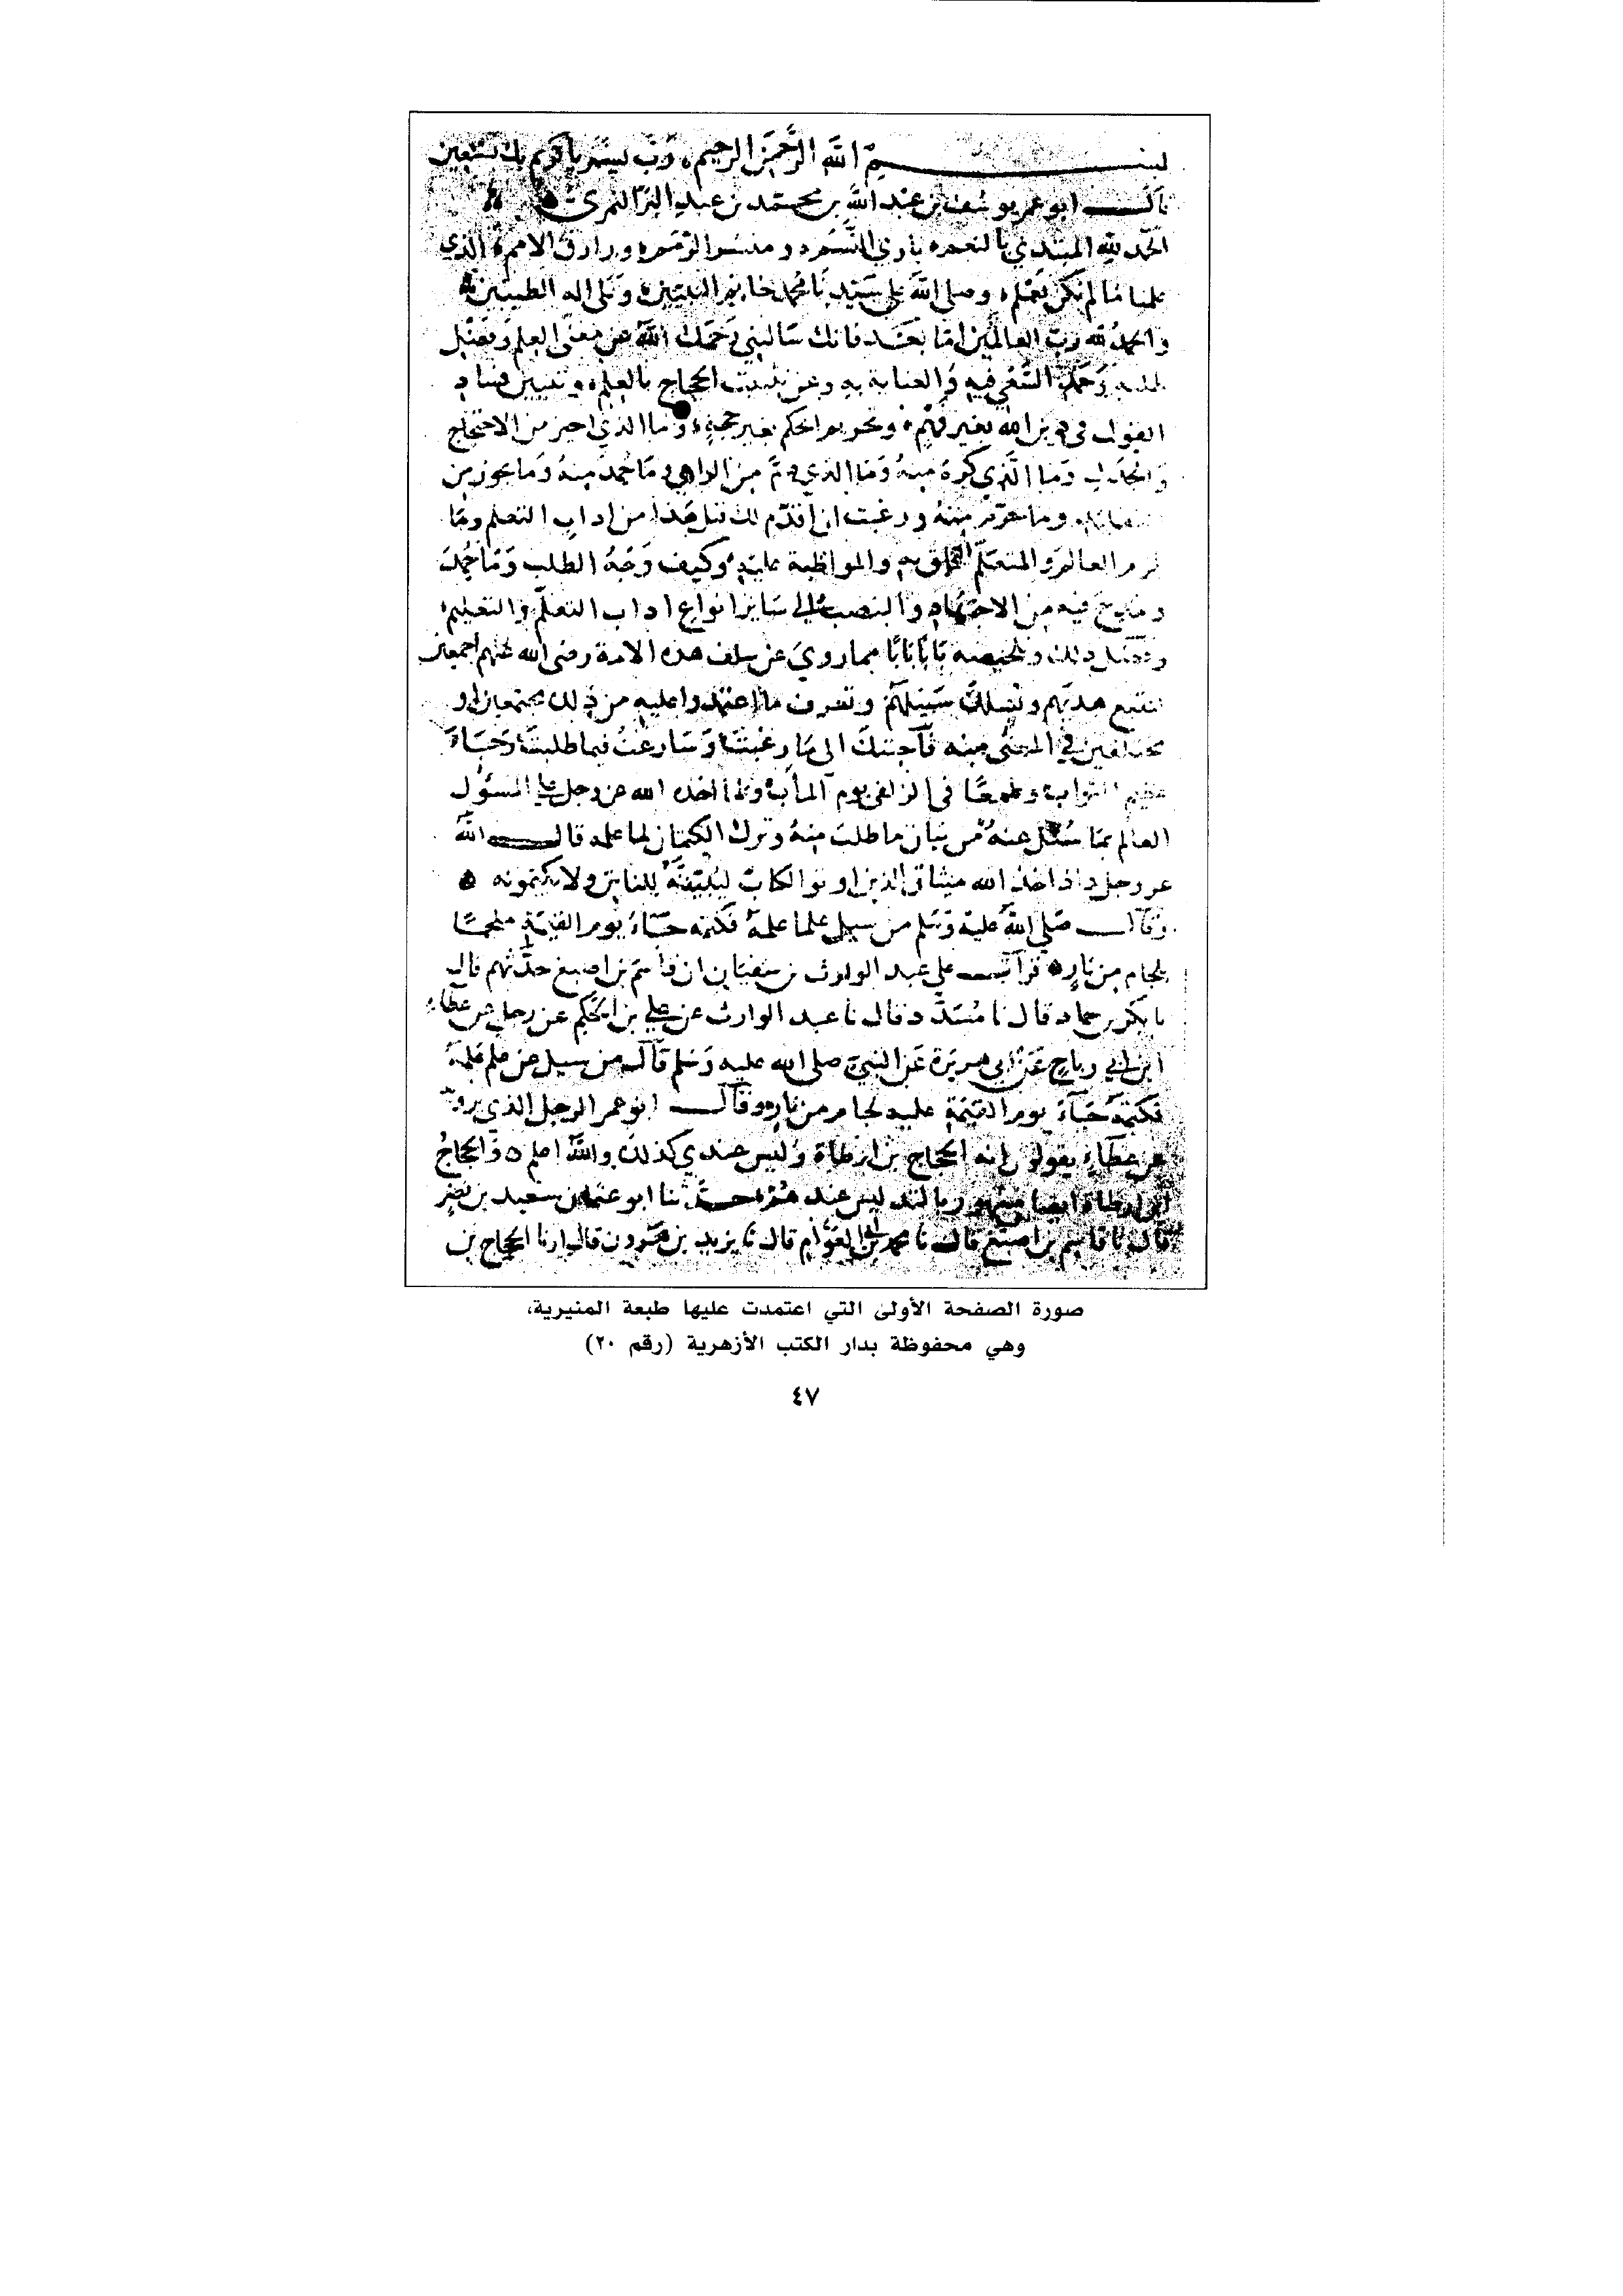 بسم الله الرحمن الرحيم رب يسر يا كريم بك نستعين
قال ابو عمر يوسف بن عبد الله بن محمد بن عبد البر النمري
الحمد لله المبتدي بالنعم بارئ النسم ومنشر الرمم ورازق الامم الذي
علمنا ما لم نكن نعلم وصلى الله على سيدنا محمد خاتم النبيين وعلى اله الطيبين
والحمد لله رب العالمين اما بعد فانك سالتني رحمك الله عن معنى العلم وفضل
طلبه وحمد السعي فيه والعناية به وعن تثبيت الحجاج بالعلم وتبيين فساد
القول في دين الله بغير فهم وتحريم الحكم بغير حجة وما الذي اجيز من الاحتجاج
والجدل وما الذي كره منه وما الذي ذم من الراي وما حمد منه وما جوز من
وما حرم منه ورغبت ان اقدم لك قبل هذا من اداب التعلم وما
يلزم العالم والمتعلم التخلق به والمواظبة عليه وكيف وجه الطلب وما حمد
ومدح فيه من الاجتهاد والنصب الى سائر انواع اداب التعلم والتعليم
وفضل ذلك وتلخيصه بابا بابا مما روي عن سلف هذه الامة رضي الله عنهم اجمعين
لتتبع هديهم وتسلك سبيلهم وتعرف ما اعتمدوا عليه من ذلك مجتمعين او
مختلفين في المعنى منه فاجبتك الى ما رغبت وسارعت فيما طلبت رجاء
عظيم الثواب وطمعا في الزلفى يوم المآب ولما اخذه الله عز وجل على المسؤل
العالم بما سئل عنه من بيان ما طلب منه وترك الكتمان لما علمه قال الله
عز وجل واذ اخذ الله ميثاق الذين اوتوا الكتاب ليبيننه للناس ولا يكتمونه
وقال صلى الله عليه وسلم من سيل علما علمه فكتمه جاء يوم القيمة ملجما
بلجام من نار قرات على عبد الوارث بن سفيان ان قاسم بن اصبغ حدثهم قال
نا بكر بن حماد قال نا مسدد قال نا عبد الوارث عن علي بن الحكم عن رجل عن عطاء
ابن ابي رباح عن ابي هريرة عن النبي صلى الله عليه وسلم قال من سيل عن علم علمه
فكتمه جاء يوم القيمة عليه لجام من نار وقال ابو عمر الرجل الذي يرويه
عن عطاء يقولون انه الحجاج بن ارطاة وليس عندي كذلك والله اعلم والحجاج
ابن ارطاة ايضا ليس عند حدثنا ابو عثمان سعيد بن نصر
قال نا قاسم بن اصبغ قال نا محمد بن ابي العوام قال نا يزيد بن هرون قال ارنا الحجاج بن
صورة الصفحة الأولى التي اعتمدت عليها طبعة المنيرية،
وهي محفوظة بدار الكتب الأزهرية (رقم ٢٠)
٤٧